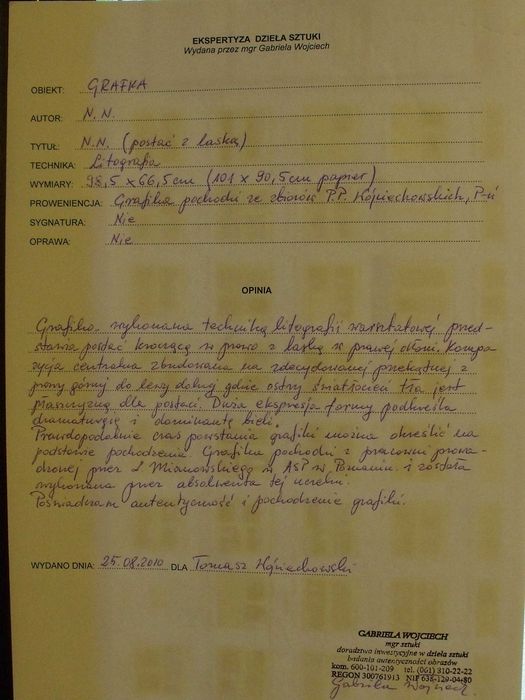 EKSPERTYZA DZIEŁA SZTUKI
Wydana przez mgr Gabriela Wojciech
OBIEKT: GRAFIKA
AUTOR: N.N.
TYTUŁ: N.N. (postać z laską)
TECHNIKA: Litografia
WYMIARY: 98,5 x 66,5 cm (101 x 90,5 cm papier)
PROWENIENCJA: Grafika pochodzi ze zbiorów P.P. Wojciechowskich, P-ń
SYGNATURA: Nie
OPRAWA: Nie
OPINIA
Grafika, wykonana techniką litografii warsztatowej przed-
stawia postać kroczącą w prawo z laską w prawej dłoni. Kompo
zycja centralna zbudowana na zdecydowanej przekątnej z
prawy górny do lewy dolny gdzie ostry światłocień tła jest
płaszczyzną dla postaci. Duża ekspresja formy podkreśla
dramaturgię i dominantę bieli.
Prawdopodobnie czas powstania grafiki można określić na
podstawie pochodzenia. Grafika pochodzi z pracowni prowa-
dzonej przez L. Mianowskiego w ASP w Poznaniu i została
wykonana przez absolwenta tej uczelni.
Poświadczam autentyczność i pochodzenie grafiki.
WYDANO DNIA: 25.08.2010 DLA Tomasz Wojciechowski
GABRIELA WOJCIECH
mgr sztuki
doradztwo inwestycyjne w dzieła sztuki
badania autentyczności obrazów
kom. 600-101-209 tel. (061) 310-22-22
REGON 300761913 NIP 638-129-04-80
Gabriela Wojciech